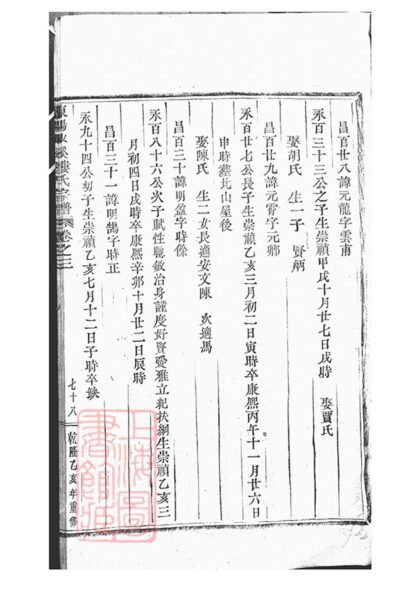 昌百廿八諱元龍字雲甫
汞百三十三公之子生崇禎甲戌十月廿七日戌時　娶賈氏
娶胡氏　生一子　賢炳
昌百廿九諱元霄字元鄉
汞百廿七公長子生崇禎乙亥三月初二日寅時卒康熙丙午十一月廿六日
申時墓北山屋後
娶陳氏　生二女長適安文陳　次適馬
昌百三十諱明盈字時係
汞百八十六公次子賦性聰敏治身謹慶好賢愛雅立紀扶綱生崇禎乙亥三
月初四日戌時卒康熙辛卯十月廿二日辰時
昌百三十一諱明鵠字時正
汞九十四公幼子生崇禎乙亥七月十二日子時卒缺
氏宗譜　卷之三
七十八
乾隆乙亥年重修
上海圖書館藏